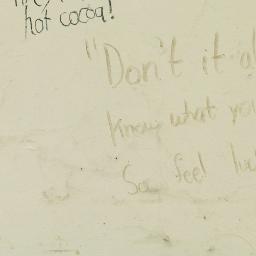 hot cocoa!
"Don't it al
Know what you
So feel